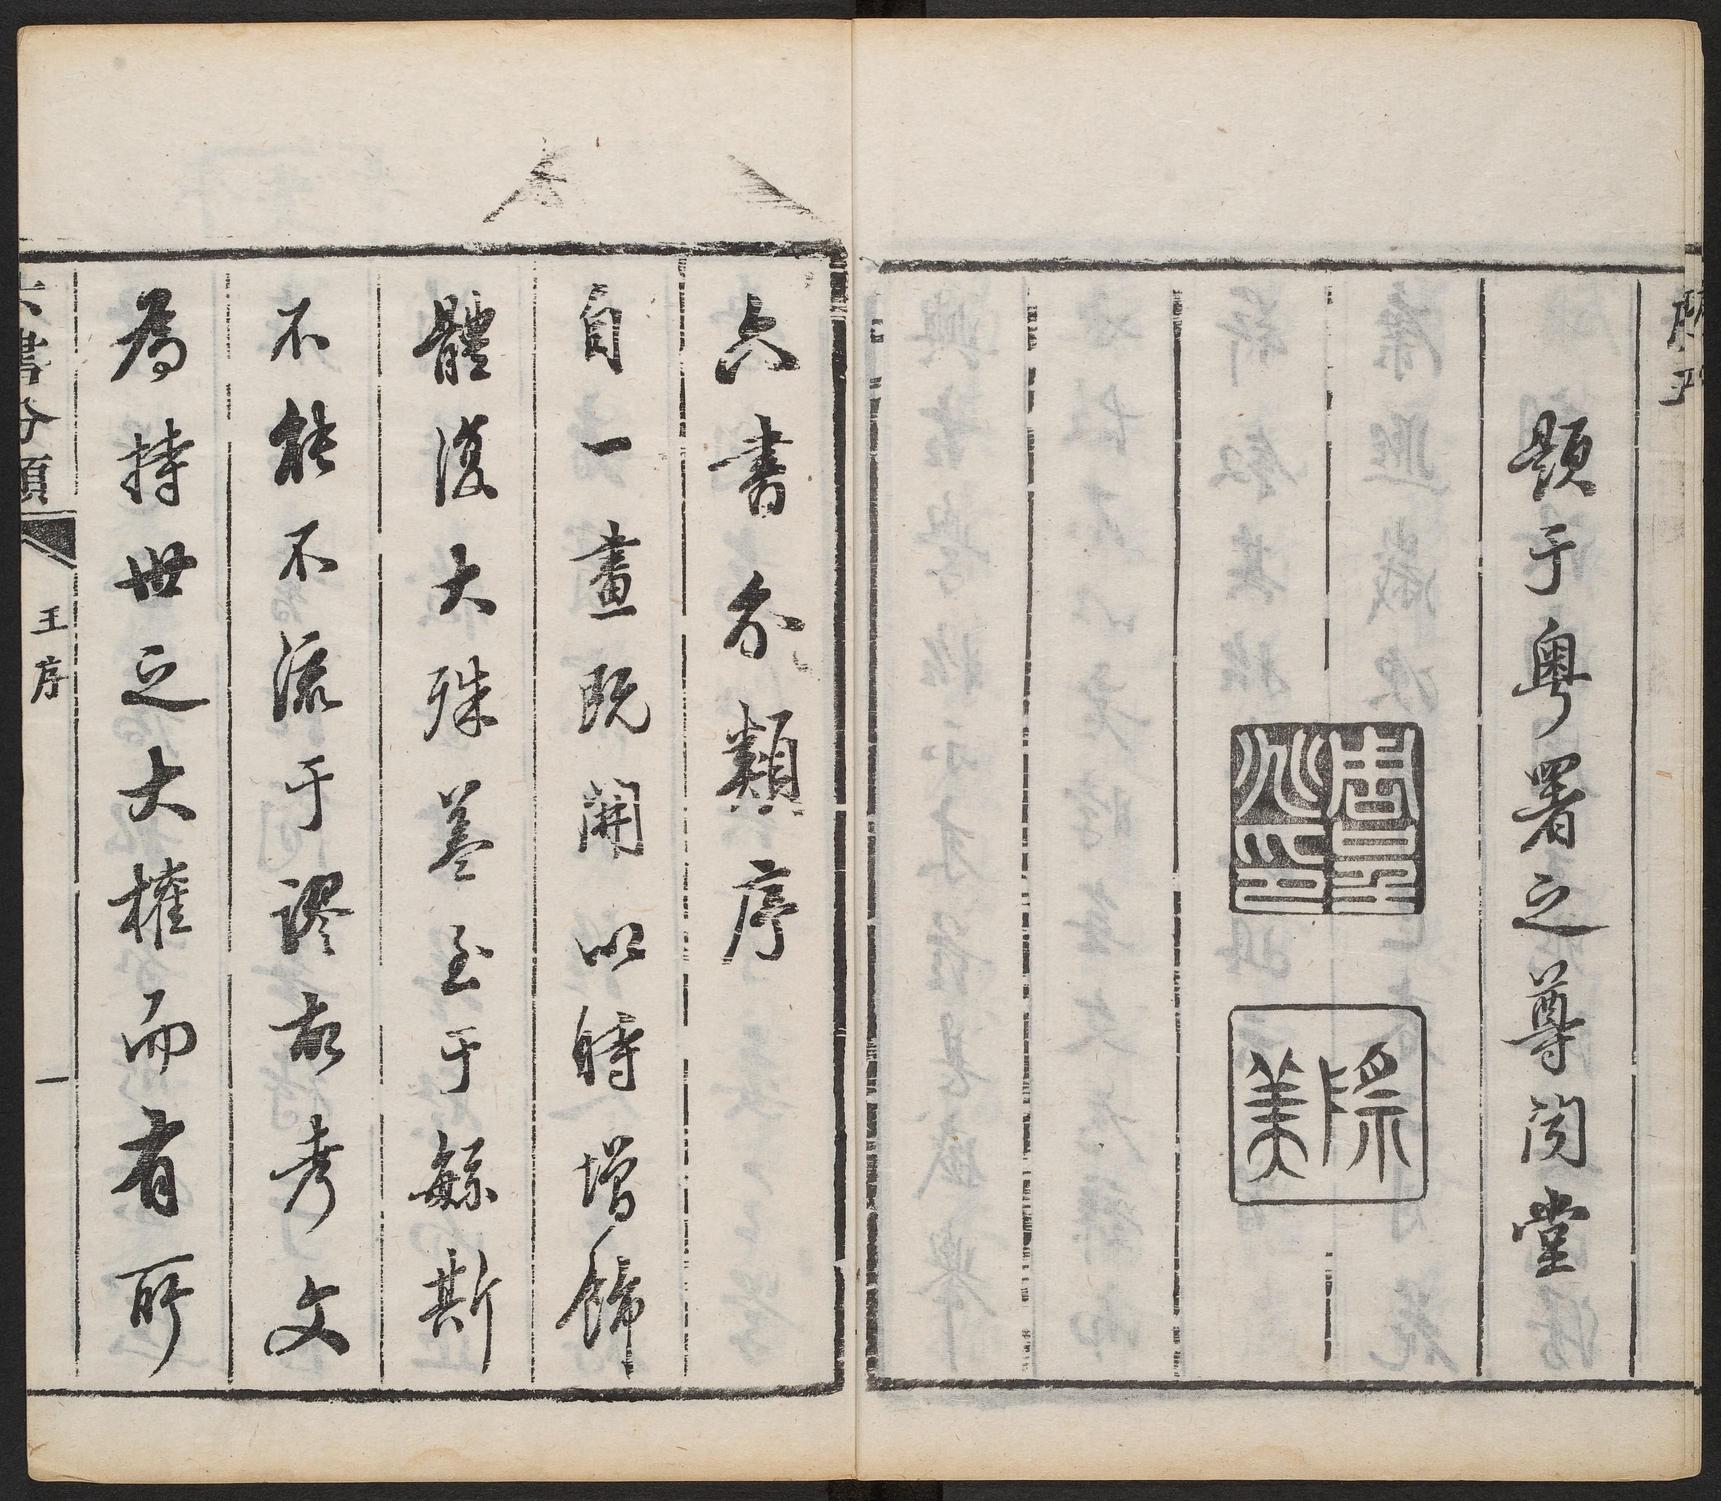 題于粵署之尊聞堂
六書分類序
自一畫既開以時增飾
體復大殊葢至于繇斯
不能不流于謬故考文
為持世之大權而有所
六書分類
王序
一